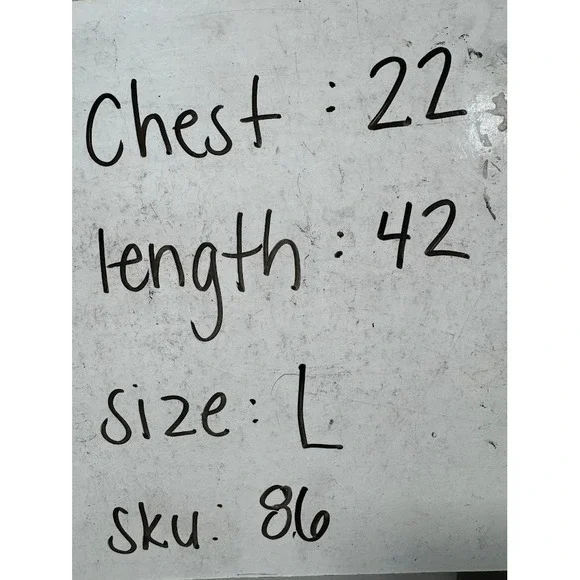 Chest : 22
length : 42
size : L
sku : 86